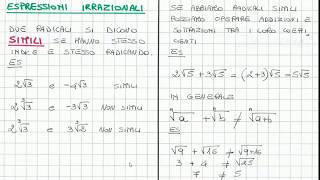 ESPRESSIONI IRRAZIONALI
DUE RADICALI SI DICONO
SIMILI SE HANNO STESSO
INDICE E STESSO RADICANDO.
ES
2√3 e -4√3 SIMILI
2∛3 e -4√3 NON SIMILI
2∛3 e 3∛2 NON SIMILI
SE ABBIAMO RADICALI SIMILI
POSSIAMO OPERARE ADDIZIONI E
SOTTRAZIONI TRA I LORO COEFFI
CIENTI
2√5 + 3√5 = (2+3)√5 = 5√5
IN GENERALE
ⁿ√a + ⁿ√b ≠ ⁿ√a+b
ES
√9 + √16 ≠ √9+16
3 + 4 ≠ √25
7 ≠ 5